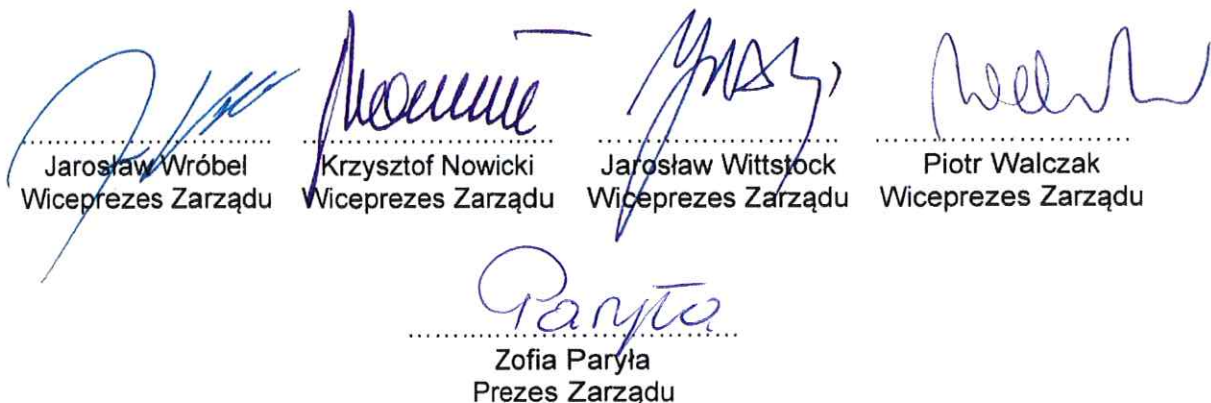 Jarosław Wróbel
Wiceprezes Zarządu
Krzysztof Nowicki
Wiceprezes Zarządu
Jarosław Wittstock
Wiceprezes Zarządu
Piotr Walczak
Wiceprezes Zarządu
Paryła
Zofia Paryła
Prezes Zarządu